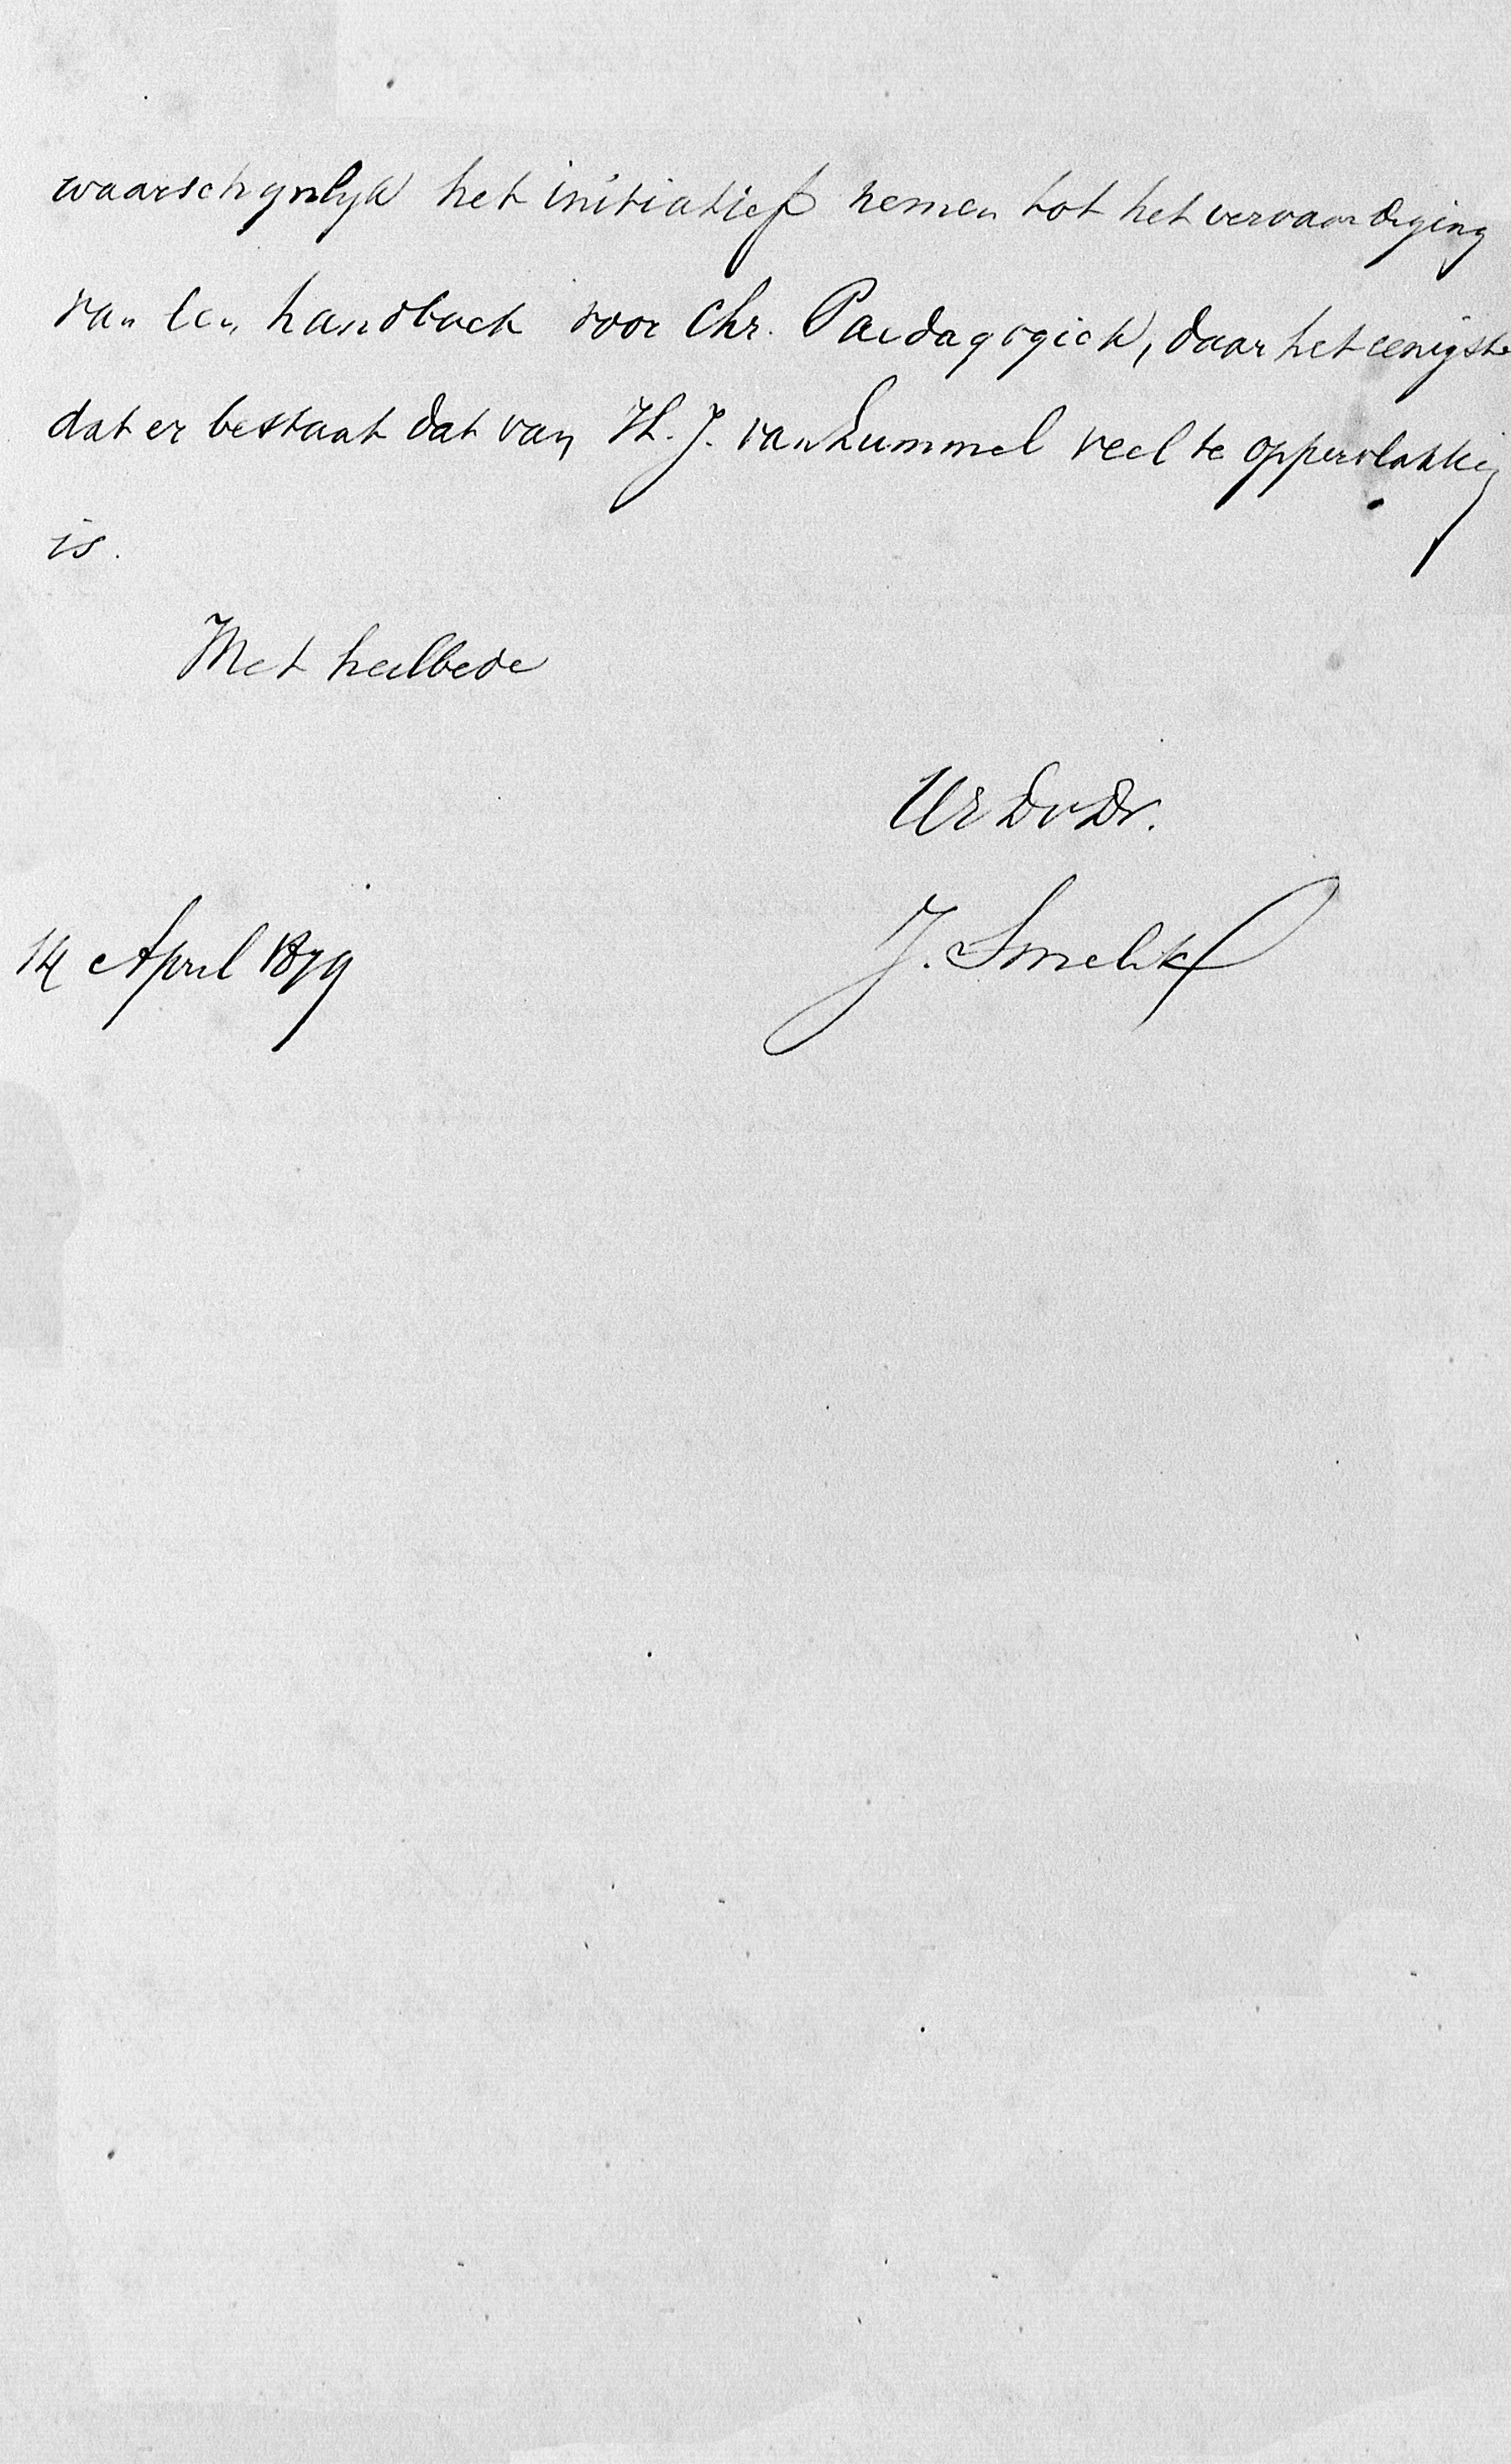 waarschynlyk het initiatief nemen tot het vervaardiging
van een handboek voor Chr. Paedagogiek, daar het eenigste
dat er bestaat dat van H. J. van Lummel veel te oppervlakkig
is.
Met heilbede
Ur Dv Dr.
J. Smelik
14 April 1879